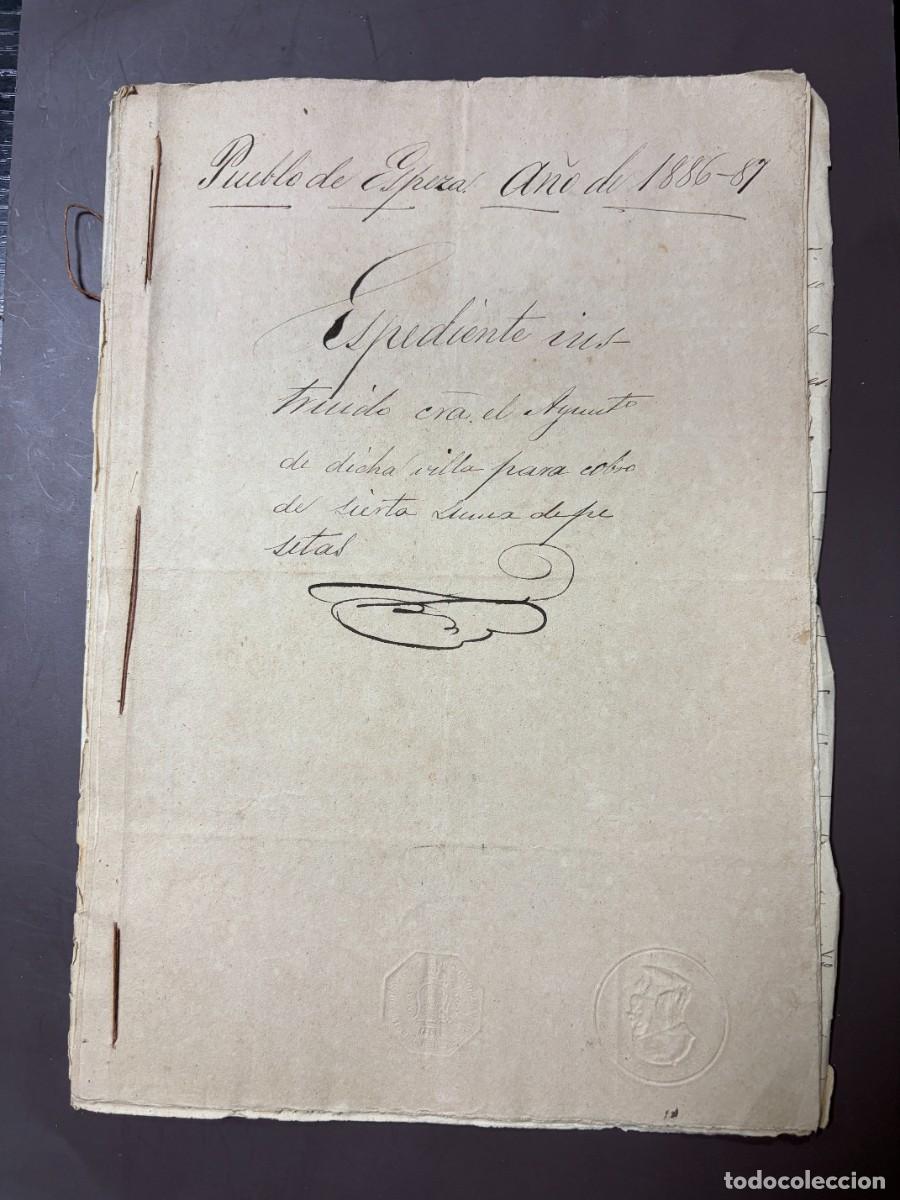 Pueblo de Espeza. Año de 1886-87
Espediente ins-
truido cra. el Ayunto
de dicha villa para cobro
de sierta suma de pe
setas
todocoleccion